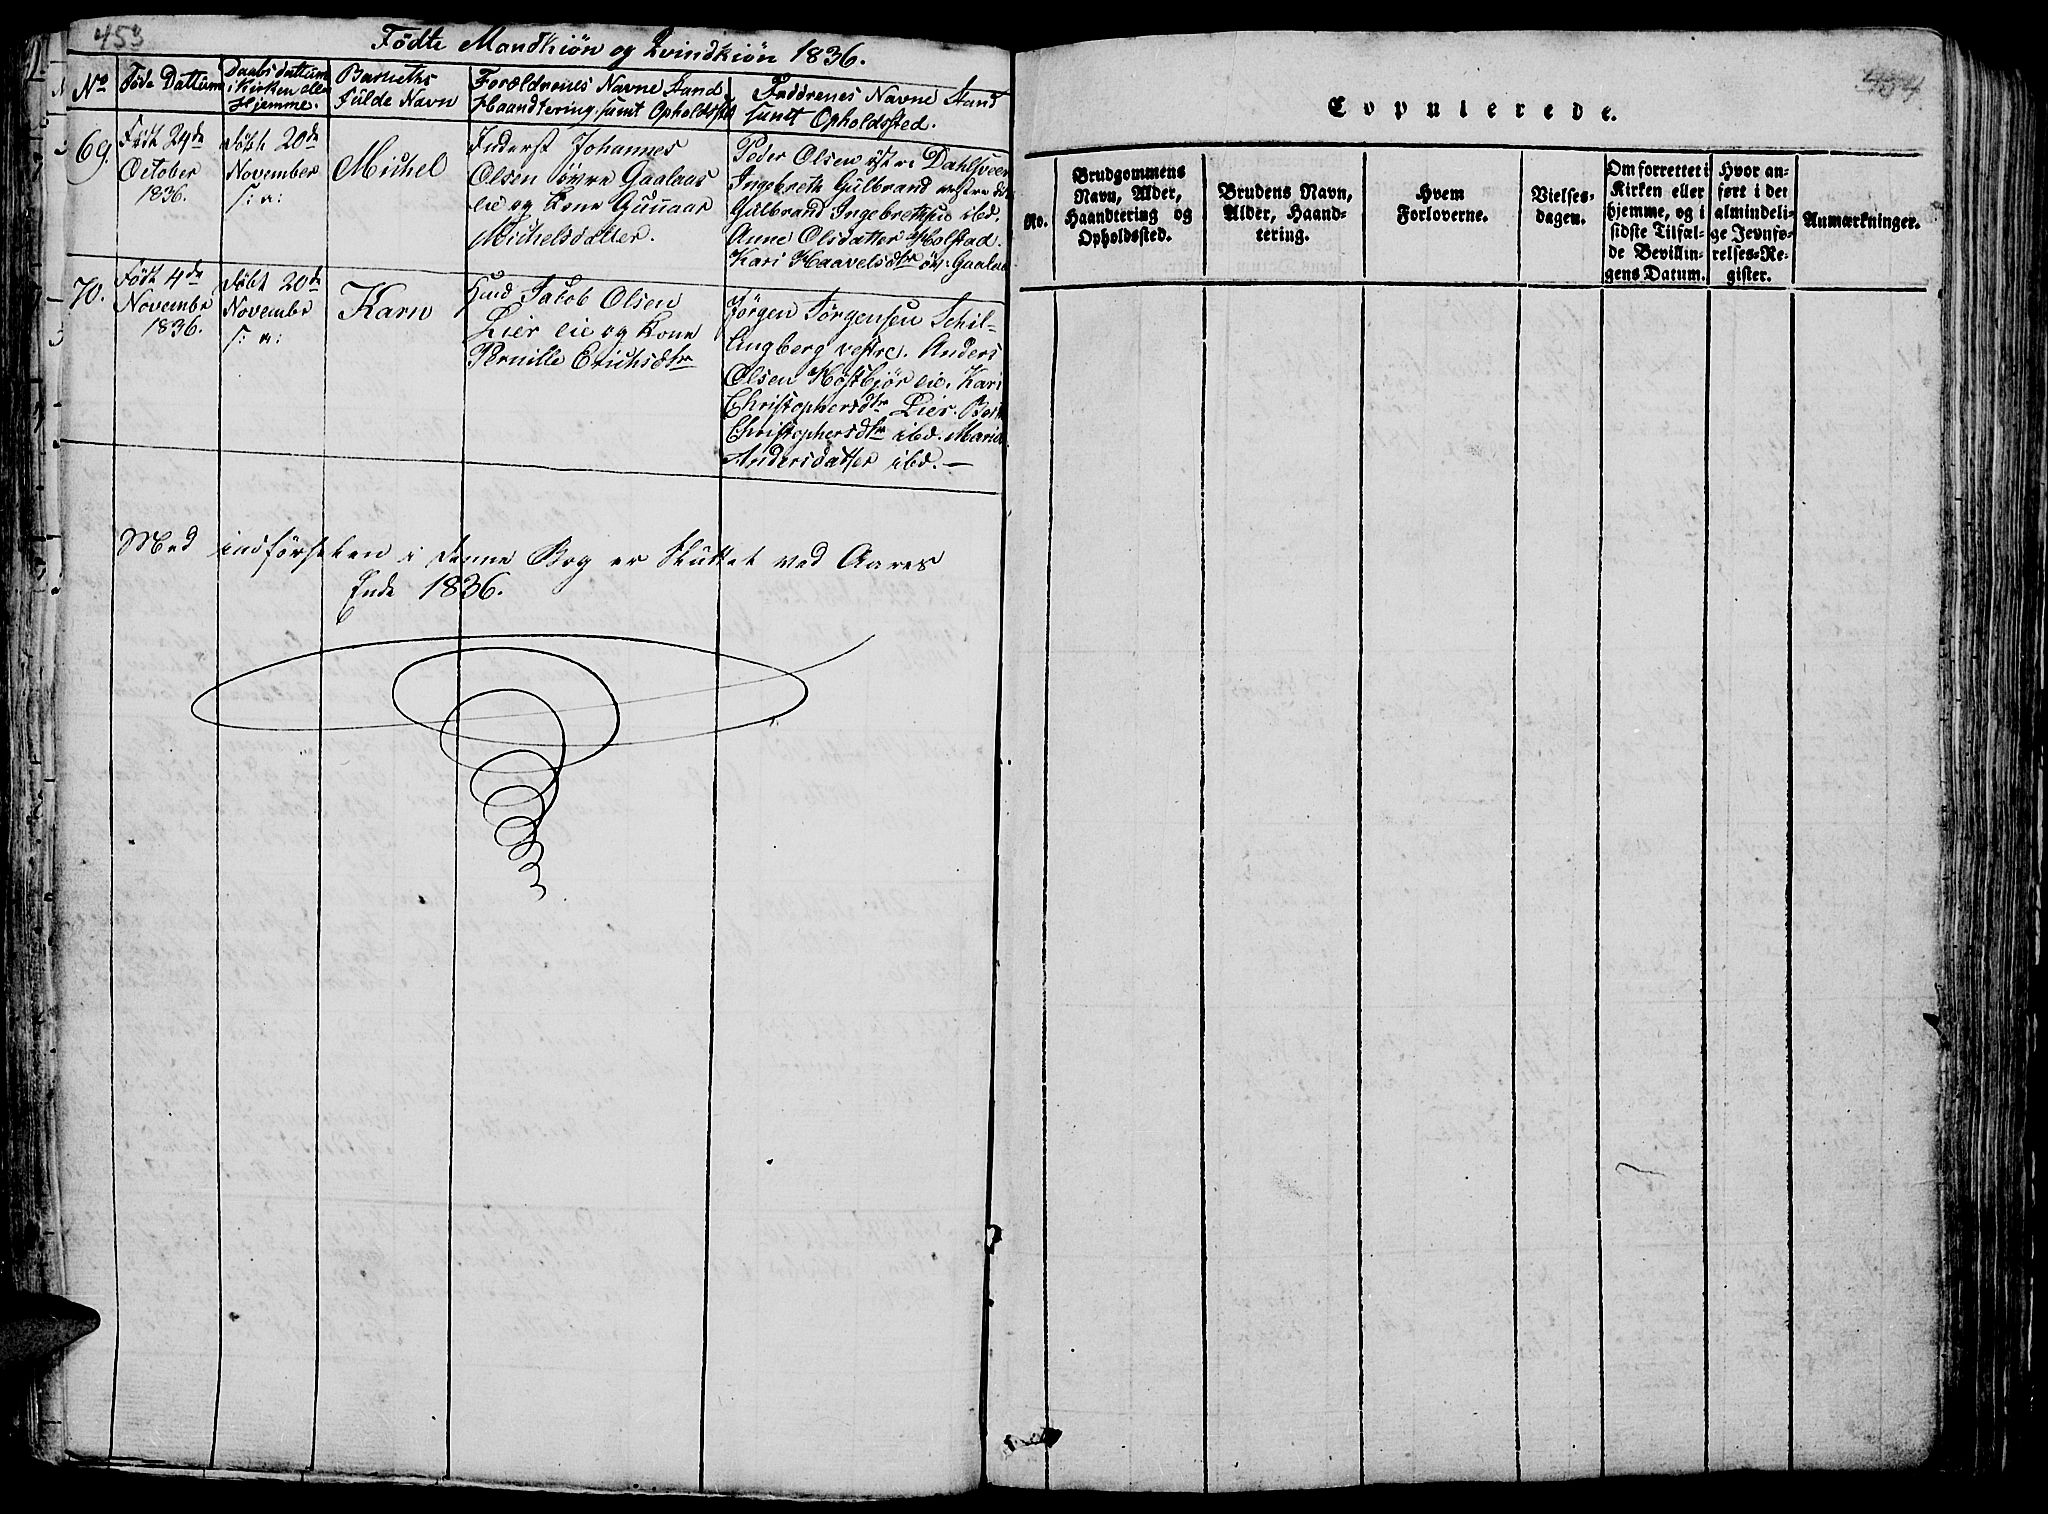 453
Fødte Mandkiøn og Qvindkiøn 1836.
No
Føde Dattum
Daabsdattum
i Kirken eller
Hjemme.
Barnets
fulde Navn
Forældrenes Navne Stand
Haandtering, samt Opholdssted
Faddrenes Navne Stand
samt Opholdssted.
69.
Født 29de
October
1836.
døbt 20de
November
s: a:
Michel
Inderst Johannes
Olsen øvre Gaalaas
eie og Kone Gunnaar
Michelsdatter.
Peder Olsen østre Dahlsveen
Ingebreth Gulbrand vestre do
Gulbrand Ingebrethsen ibd.
Anne Olsdatter Holstad.
Kari Haavelsdtr øv: Gaalaas
70.
Født 4de
Novembr
1836.
døbt 20de
Novembr
s: a:
Karn
Huusm Jacob Olsen
Lier eie og Kone
Pernille Erichsdtr
Jørgen Jørgensen Schil-
lingberg vestre. Anders
Olsen Høstbjør eie. Kari
Christophersdtr Lier. Berte
Christophersdtr ibd. Maria
Andersdatter ibd. —
Med indførselen i denne Bog er sluttet ved Aarets
Ende 1836.
454
Copulerede.
No.
Brudgommens
Navn, Alder,
Haandtering og
Opholdssted.
Brudens Navn,
Alder, Haand-
tering.
Hvem
Forloverne.
Vielses-
dagen.
Om forrettet i
Kirken eller
hjemme, og i
sidste Tilfæl-
de Bevillin-
gens Datum.
Hvor an-
ført i det
almindeli-
ge Jevnfø-
relses-Re-
gister.
Anmærkninger.